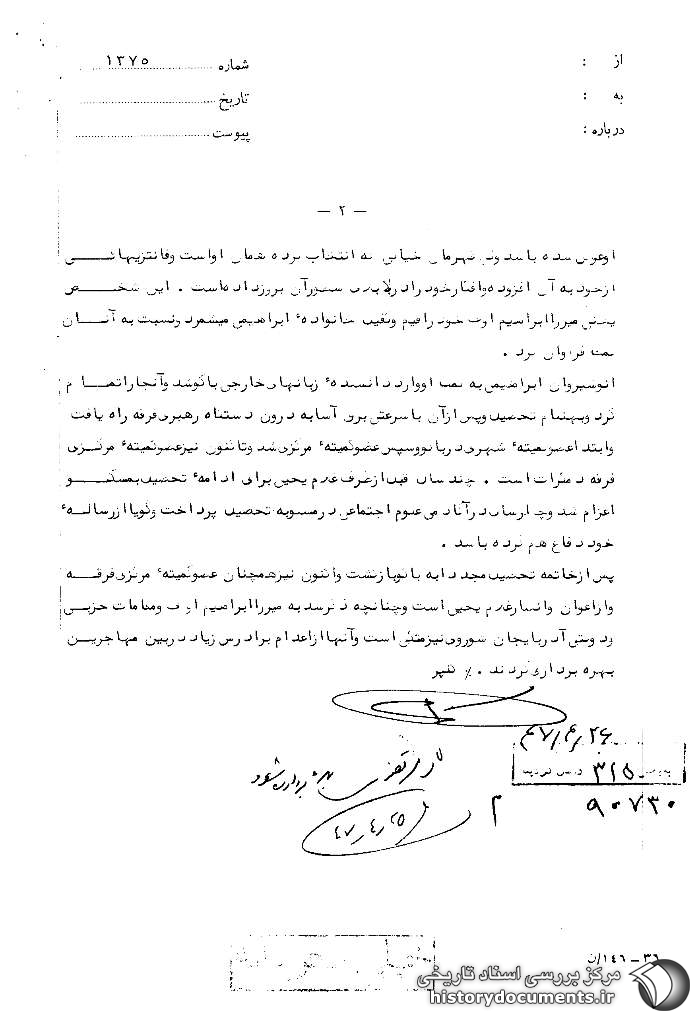 از :
به :
درباره :
شماره ۱۳۷۵
تاریخ
پیوست
— ۲ —
او عوض شده باشد ولی قهرمان خیالی به انتخاب کرده همان او است وفانتزیهائی
از خود به آن افزوده وافکار خود را در آن بروز داده است . این شخص
یعنی میرزا ابراهیم اوف خود را قیم ونقیب خانواده ابراهیمی میشمرد ونسبت به آنان
کمک فراوان کرد .
انوشیروان ابراهیمی به کمک او وارد دانشکده زبانهای خارجی باکو شد وآنجا را تمام
کرد وبهنگام تحصیل وپس از آن با سرعتی بدرون دستگاه رهبری فرقه راه یافت
وابتدا عضو کمیته شهری در باکو وسپس عضو کمیته مرکزی شد وتاکنون نیز عضو کمیته مرکزی
فرقه دمکرات است . چند سال قبل از طرف غلام یحیی برای ادامه تحصیل بمسکو
اعزام شد وچهار سال در آکادمی علوم اجتماعی در مسکو به تحصیل پرداخت وگویا از رساله
خود دفاع هم کرده باشد .
پس از خاتمه تحصیل مجددا به باکو بازگشت واکنون نیز همچنان عضو کمیته مرکزی فرقه
واز اعوان وانصار غلام یحیی است وچنانچه ذکر شد به میرزا ابراهیم اوف ومقامات حزبی
ودولتی آذربایجان شوروی نیز متکی است وآنها از اعدام برادرش زیاد در بین مهاجرین
بهره برداری کردند . ٪
۴۷/۴/۲۶
۳۱۵
۹۰۷۳۰
بهره برداری شود
۴۷/۴/۲۵
۳۶ – ۱۴۶/ن
مرکز بررسی اسناد تاریخی
historydocuments.ir